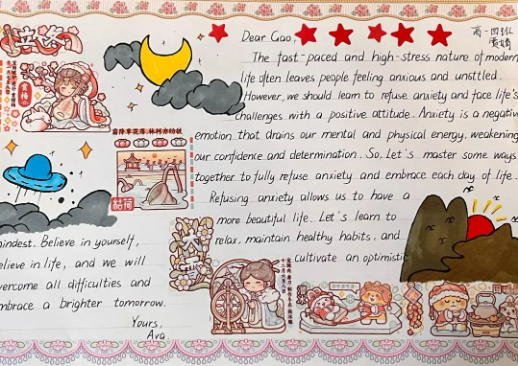 Dear Gao,
The fast-paced and high-stress nature of modern
life often leaves people feeling anxious and unsttled.
However, we should learn to refuse anxiety and face life's
challenges with a positive attitude. Anxiety is a negative
emotion that drains our mental and physical energy, weakening
our confidence and determination. So, Let's master some ways
together to fully refuse anxiety and embrace each day of life.
Refusing anxiety allows us to have a
more beautiful life. Let's learn to
relax, maintain healthy habits, and
cultivate an optimistic
mindest. Believe in yourself,
believe in life, and we will
overcome all difficulties and
embrace a brighter tomorrow.
Yours,
Ava